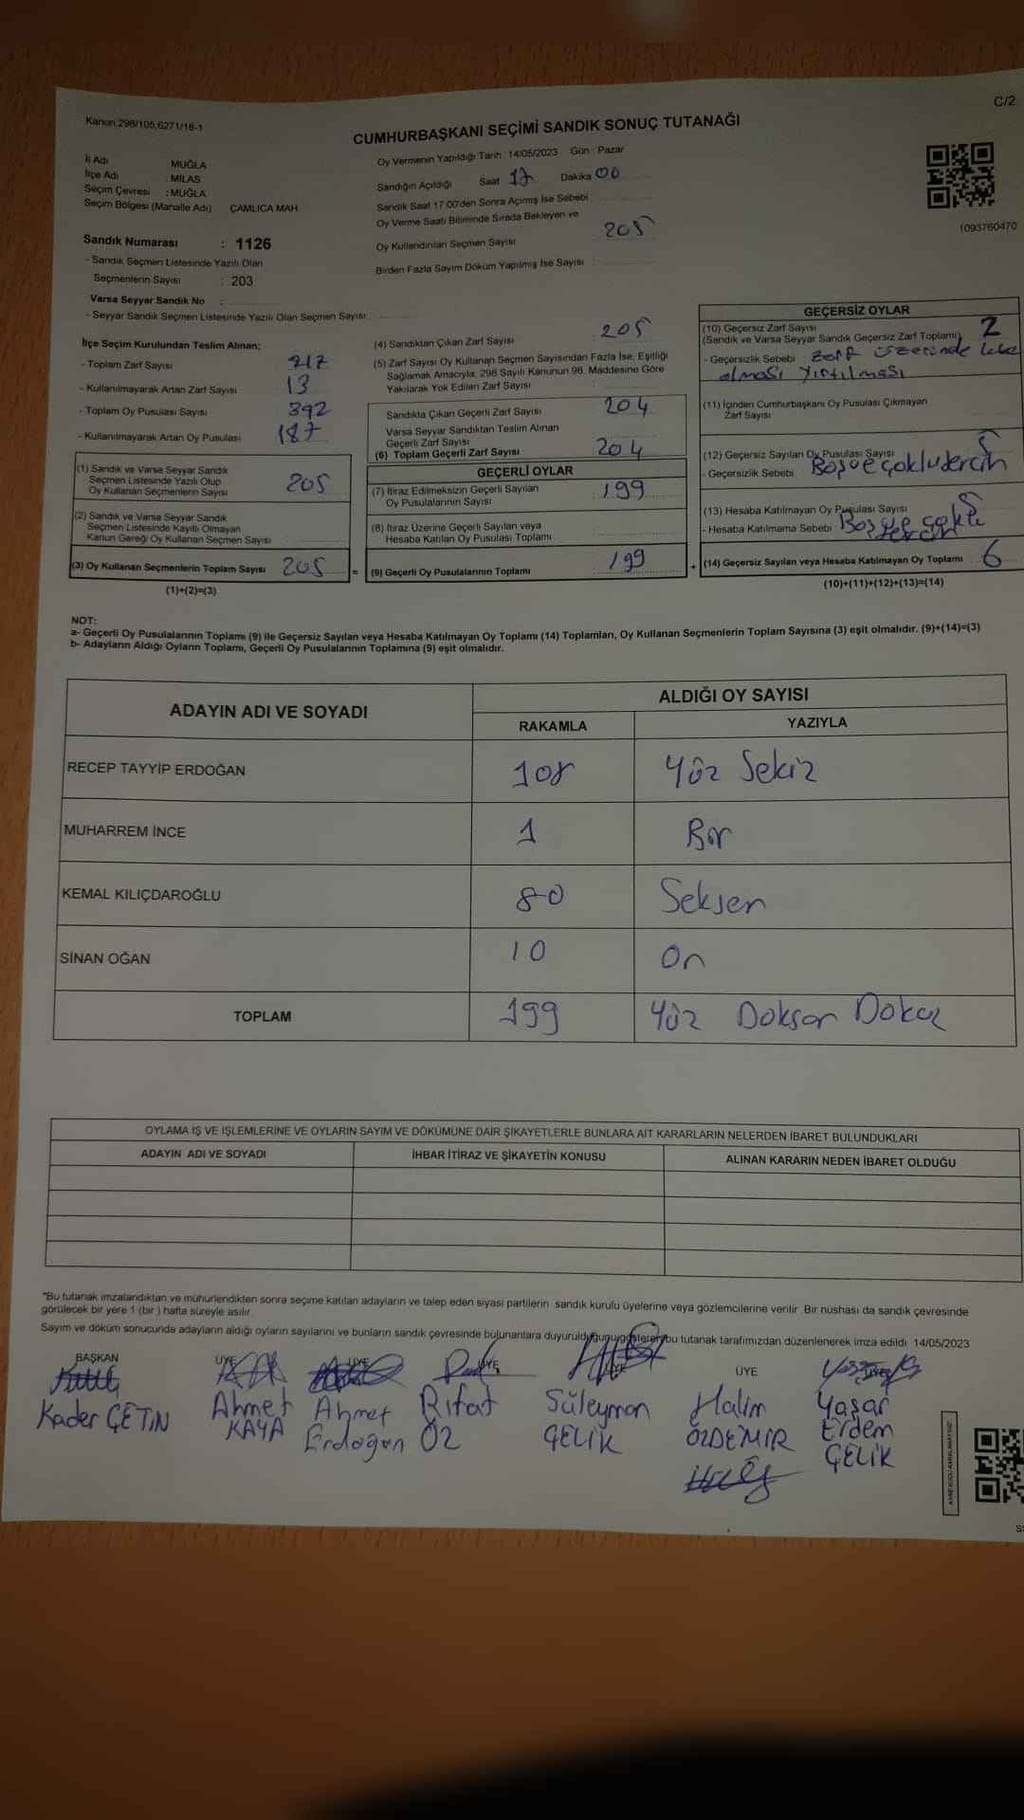 C/2
Kanun:298/105,6271/18-1
CUMHURBAŞKANI SEÇİMİ SANDIK SONUÇ TUTANAĞI
İl Adı MUĞLA
İlçe Adı MİLAS
Seçim Çevresi :MUĞLA
Seçim Bölgesi (Mahalle Adı) ÇAMLICA MAH.
Sandık Numarası : 1126
- Sandık Seçmen Listesinde Yazılı Olan
Seçmenlerin Sayısı : 203
Varsa Seyyar Sandık No :
- Seyyar Sandık Seçmen Listesinde Yazılı Olan Seçmen Sayısı:
Oy Vermenin Yapıldığı Tarih: 14/05/2023 Gün : Pazar
Sandığın Açıldığı Saat 17 Dakika 00
Sandık Saat 17.00'den Sonra Açılmış İse Sebebi
Oy Verme Saati Bitiminde Sırada Bekleyen ve
Oy Kullandırılan Seçmen Sayısı 205
Birden Fazla Sayım Döküm Yapılmış İse Sayısı :
1093760470
İlçe Seçim Kurulundan Teslim Alınan:
- Toplam Zarf Sayısı 217
- Kullanılmayarak Artan Zarf Sayısı 13
- Toplam Oy Pusulası Sayısı 392
- Kullanılmayarak Artan Oy Pusulası 187
(1) Sandık ve Varsa Seyyar Sandık
Seçmen Listesinde Yazılı Olup
Oy Kullanan Seçmenlerin Sayısı 205
(2) Sandık ve Varsa Seyyar Sandık
Seçmen Listesinde Kayıtlı Olmayan
Kanun Gereği Oy Kullanan Seçmen Sayısı
(3) Oy Kullanan Seçmenlerin Toplam Sayısı 205
(1)+(2)=(3)
(4) Sandıktan Çıkan Zarf Sayısı 205
(5) Zarf Sayısı Oy Kullanan Seçmen Sayısından Fazla İse, Eşitliği
Sağlamak Amacıyla, 298 Sayılı Kanunun 98. Maddesine Göre
Yakılarak Yok Edilen Zarf Sayısı :
Sandıkta Çıkan Geçerli Zarf Sayısı 204
Varsa Seyyar Sandıktan Teslim Alınan
Geçerli Zarf Sayısı
(6) Toplam Geçerli Zarf Sayısı 204
GEÇERLİ OYLAR
(7) İtiraz Edilmeksizin Geçerli Sayılan
Oy Pusulalarının Sayısı 199
(8) İtiraz Üzerine Geçerli Sayılan veya
Hesaba Katılan Oy Pusulası Toplamı
= (9) Geçerli Oy Pusulalarının Toplamı 199
GEÇERSİZ OYLAR
(10) Geçersiz Zarf Sayısı 2
(Sandık ve Varsa Seyyar Sandık Geçersiz Zarf Toplamı)
- Geçersizlik Sebebi zarf üzerinde leke
olması yırtılması
(11) İçinden Cumhurbaşkanı Oy Pusulası Çıkmayan
Zarf Sayısı
(12) Geçersiz Sayılan Oy Pusulası Sayısı 5
- Geçersizlik Sebebi Boş ve çoklu tercih
(13) Hesaba Katılmayan Oy Pusulası Sayısı 5
- Hesaba Katılmama Sebebi Boş ve çoklu
+ (14) Geçersiz Sayılan veya Hesaba Katılmayan Oy Toplamı 6
(10)+(11)+(12)+(13)=(14)
NOT:
a- Geçerli Oy Pusulalarının Toplamı (9) ile Geçersiz Sayılan veya Hesaba Katılmayan Oy Toplamı (14) Toplamları, Oy Kullanan Seçmenlerin Toplam Sayısına (3) eşit olmalıdır. (9)+(14)=(3)
b- Adayların Aldığı Oyların Toplamı, Geçerli Oy Pusulalarının Toplamına (9) eşit olmalıdır.
ADAYIN ADI VE SOYADI ALDIĞI OY SAYISI
RAKAMLA YAZIYLA
RECEP TAYYİP ERDOĞAN 108 Yüz Sekiz
MUHARREM İNCE 1 Bir
KEMAL KILIÇDAROĞLU 80 Seksen
SİNAN OĞAN 10 On
TOPLAM 199 Yüz Doksan Dokuz
OYLAMA İŞ VE İŞLEMLERİNE VE OYLARIN SAYIM VE DÖKÜMÜNE DAİR ŞİKAYETLERLE BUNLARA AİT KARARLARIN NELERDEN İBARET BULUNDUKLARI
ADAYIN ADI VE SOYADI İHBAR İTİRAZ VE ŞİKAYETİN KONUSU ALINAN KARARIN NEDEN İBARET OLDUĞU
*Bu tutanak imzalandıktan ve mühürlendikten sonra seçime katılan adayların ve talep eden siyasi partilerin sandık kurulu üyelerine veya gözlemcilerine verilir. Bir nüshası da sandık çevresinde
görülecek bir yere 1 (bir) hafta süreyle asılır.
Sayım ve döküm sonucunda adayların aldığı oyların sayılarını ve bunların sandık çevresinde bulunanlara duyurulduğunu gösterir bu tutanak tarafımızdan düzenlenerek imza edildi. 14/05/2023
BAŞKAN ÜYE ÜYE ÜYE ÜYE ÜYE ÜYE
Kader ÇETİN Ahmet KAYA Ahmet Erdoğan Rıfat ÖZ Süleyman ÇELİK Halim ÖZDEMİR Yaşar Erdem ÇELİK